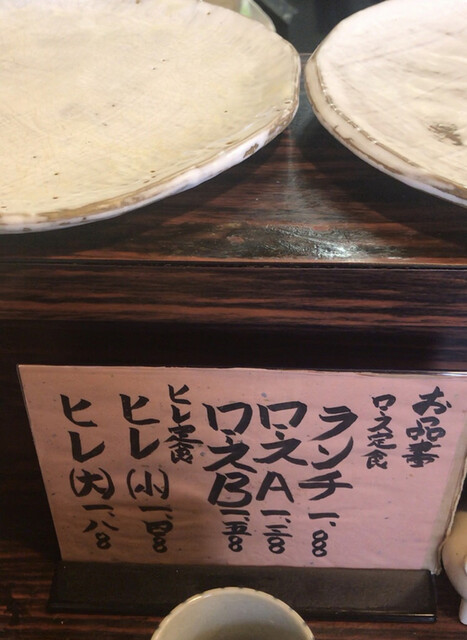 お品書
ロース定食
ランチ 一、〇〇
ロースA 一、二〇〇
ロースB 一、五〇〇
ヒレ定食
ヒレ(小) 一、四〇〇
ヒレ(大) 一、八〇〇